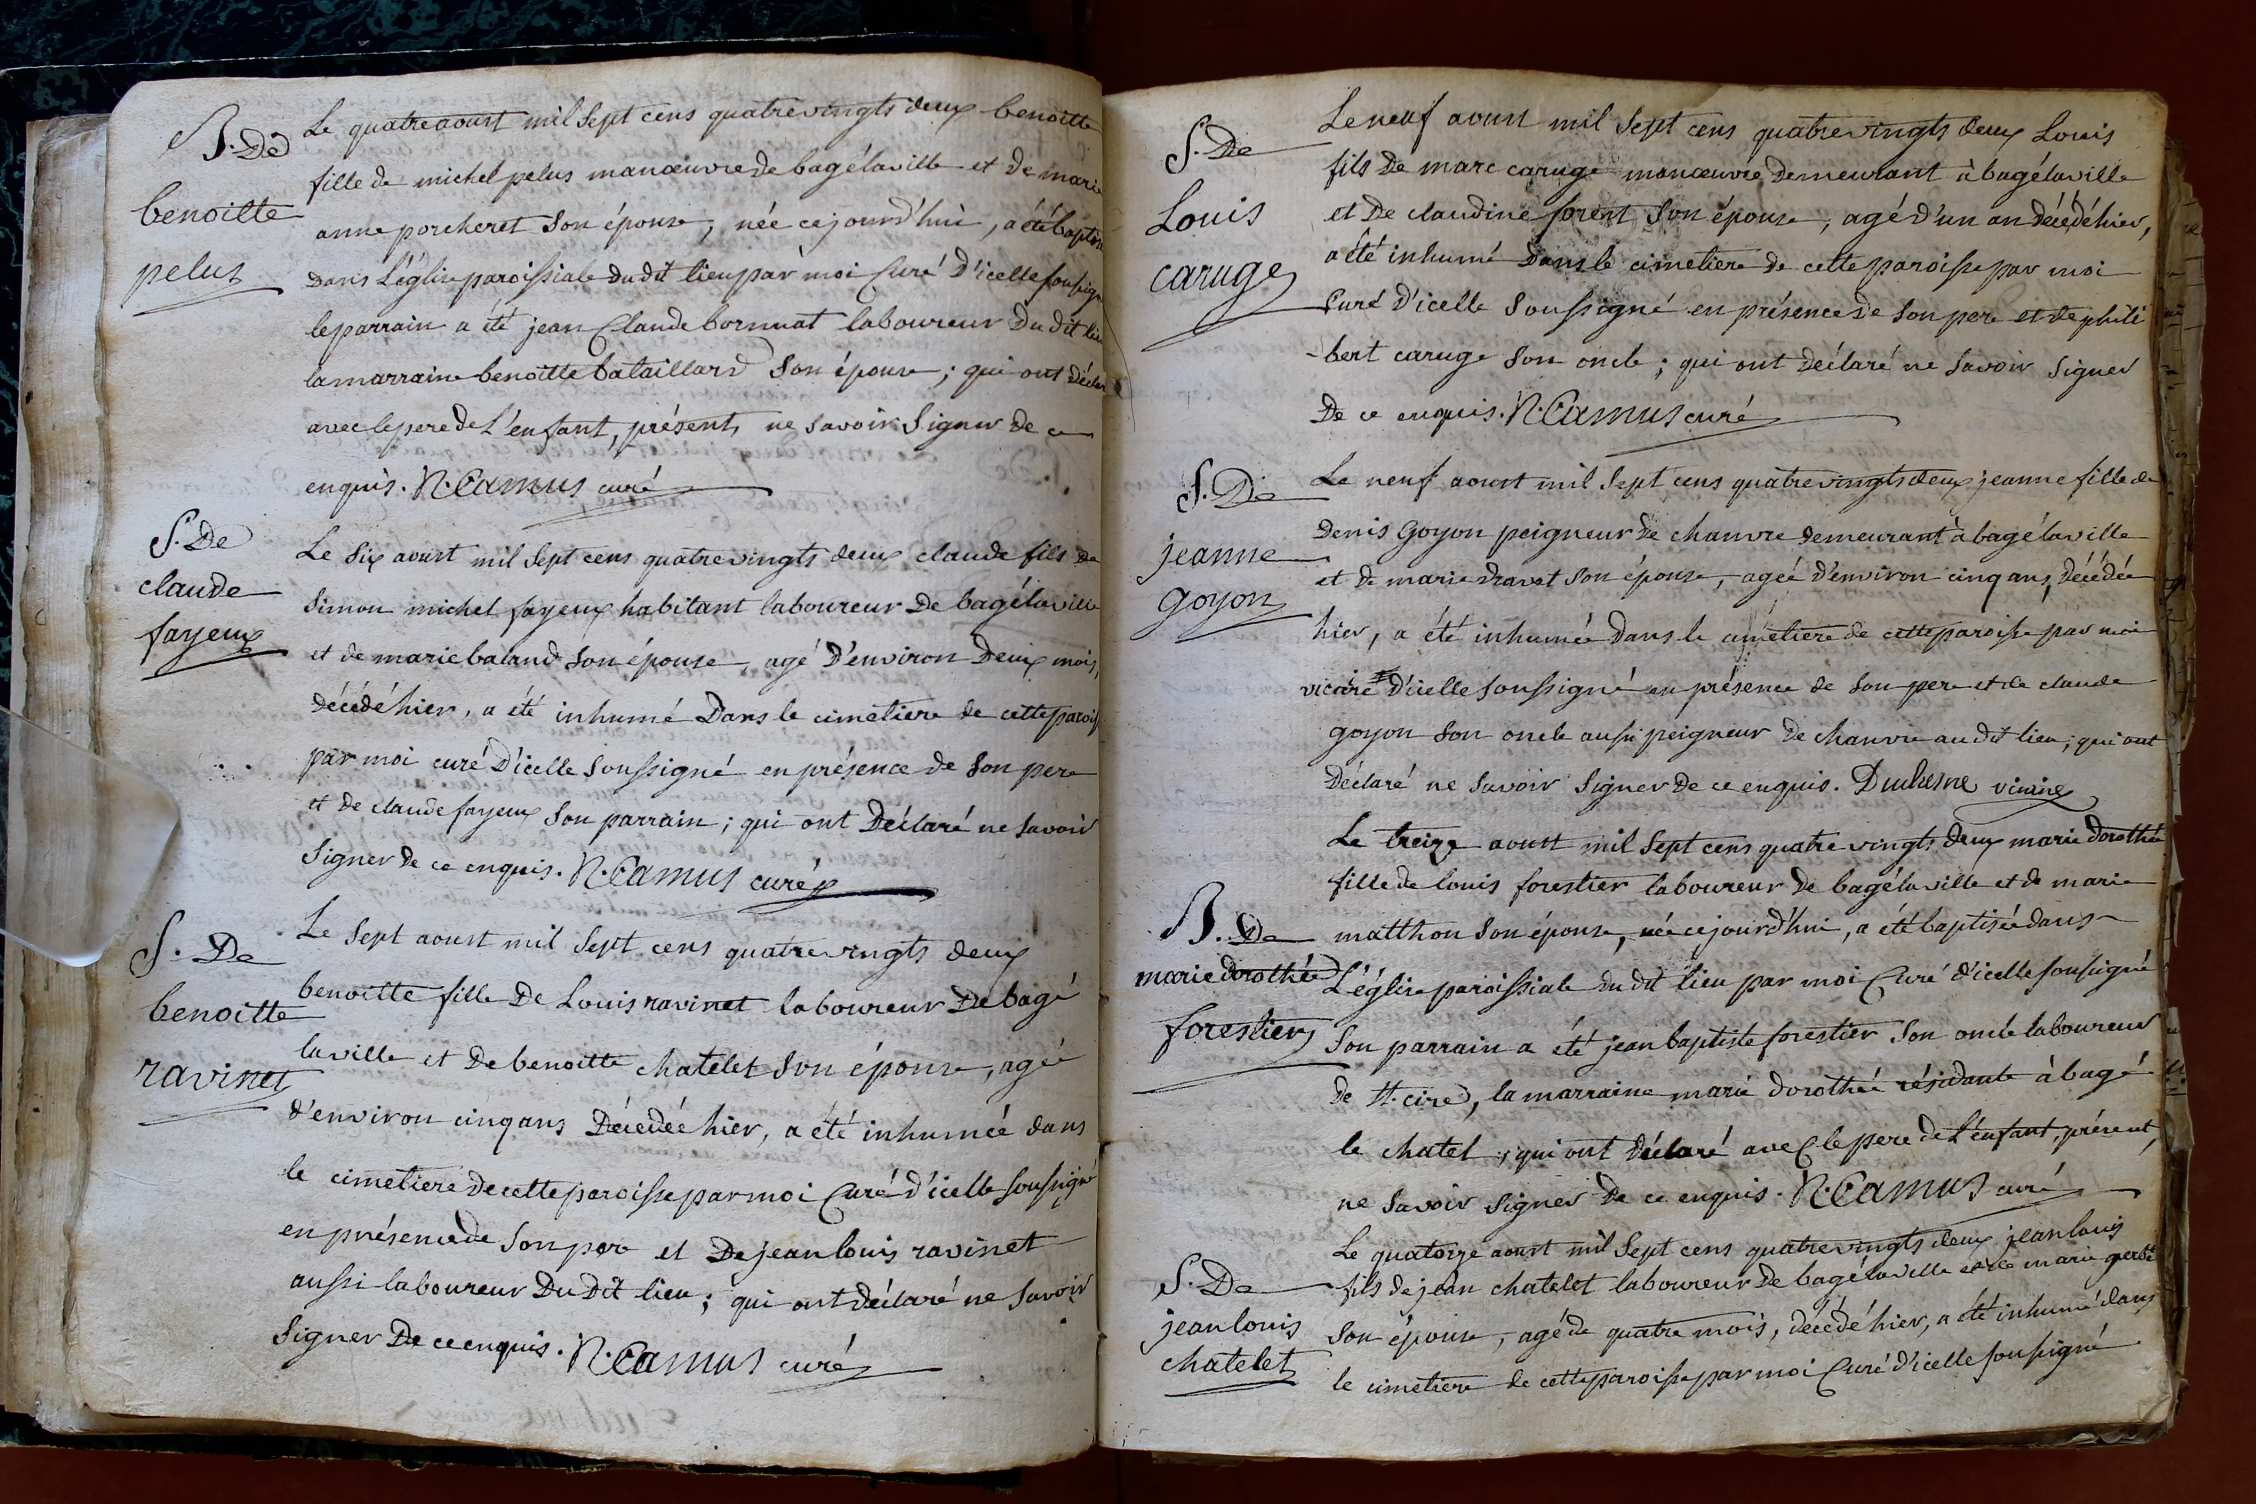 B. De
benoitte
pelus
Le quatre aoust mil Sept cens quatre vingts deux benoitte
fille de michel pelus manœuvre de bagé la ville et de marie
anne porcheret Son épouse, née ce jourd'hui, a été baptis
dans L'église paroissiale du dit lieu par moi Curé d'icelle Soussign
le parrain a été jean Claude bornuat laboureur Du dit lieu
la marraine benoitte bataillard Son épouse; qui ont déclar
avec le pere de L'enfant, présent, ne Savoir Signer de ce
enquis. N. Camus curé
S. De
claude
fayeux
Le Six aoust mil Sept cens quatre vingts deux claude fils de
Simon michel fayeux habitant laboureur De bagé la ville
et de marie baland Son épouse, agé D'environ Deux mois,
décédé hier, a été inhumé Dans le cimetiere de cette parois
par moi curé D'icelle Soussigné en présence de Son pere
et de claude fayeux Son parrain; qui ont Déclaré ne Savoir
Signer de ce enquis. N. Camus curé
S. De
benoitte
ravinet
Le Sept aoust mil Sept cens quatre vingts deux
benoitte fille De Louis ravinet laboureur De bagé
la ville et De benoitte chatelet Son épouse, agée
d'environ cinq ans Décédée hier, a été inhumée dans
le cimetiere de cette paroisse par moi Curé d'icelle Soussigné
en présence de Son pere et De jean louis ravinet
aussi laboureur Du Dit lieu; qui ont déclaré ne Savoir
Signer De ce enquis. N. Camus curé
S. De
Louis
caruge
Le neuf aoust mil Sept cens quatre vingts deux Louis
fils De marc caruge manœuvre Demeurant à bagé la ville
et De claudine forent Son épouse, agé d'un an décédé hier,
a été inhumé Dans le cimetiere de cette paroisse par moi
Curé D'icelle Soussigné en présence De Son pere et de phili
-bert caruge Son oncle; qui ont déclaré ne Savoir Signer
De ce enquis. N. Camus curé
S. De
jeanne
goyon
Le neuf aoust mil Sept cens quatre vingts deux jeanne fille de
Denis Goyon peigneur de chanvre demeurant à bagé la ville
et de marie dravet Son épouse, agée d'environ cinq ans, décédée
hier, a été inhumée Dans le cimetiere de cette paroisse par moi
vicaire D'icelle Soussigné en présence de Son pere et de claude
goyon Son oncle aussi peigneur de chanvre au dit lieu; qui ont
Déclaré ne Savoir Signer De ce enquis. Duchesne vicaire
B. De
marie dorothée
forestier
Le treize aoust mil Sept cens quatre vingts deux marie dorothée
fille de louis forestier laboureur de bagé la ville et de marie
matthon Son épouse, née ce jourd'hui, a été baptisée dans
L'église paroissiale du dit lieu par moi Curé d'icelle Soussigné
Son parrain a été jean baptiste forestier Son oncle laboureur
de St. cire, la marraine marie dorothée résidante à bagé
le chatel; qui ont déclaré avec le pere de L'enfant, présent,
ne Savoir Signer De ce enquis. N. Camus curé
S. De
jean louis
chatelet
Le quatorze aoust mil Sept cens quatre vingts deux jean louis
fils de jean chatelet laboureur De bagé la ville et de marie
Son épouse, agé de quatre mois, décédé hier, a été inhumé dans
le cimetiere de cette paroisse par moi Curé d'icelle Soussigné